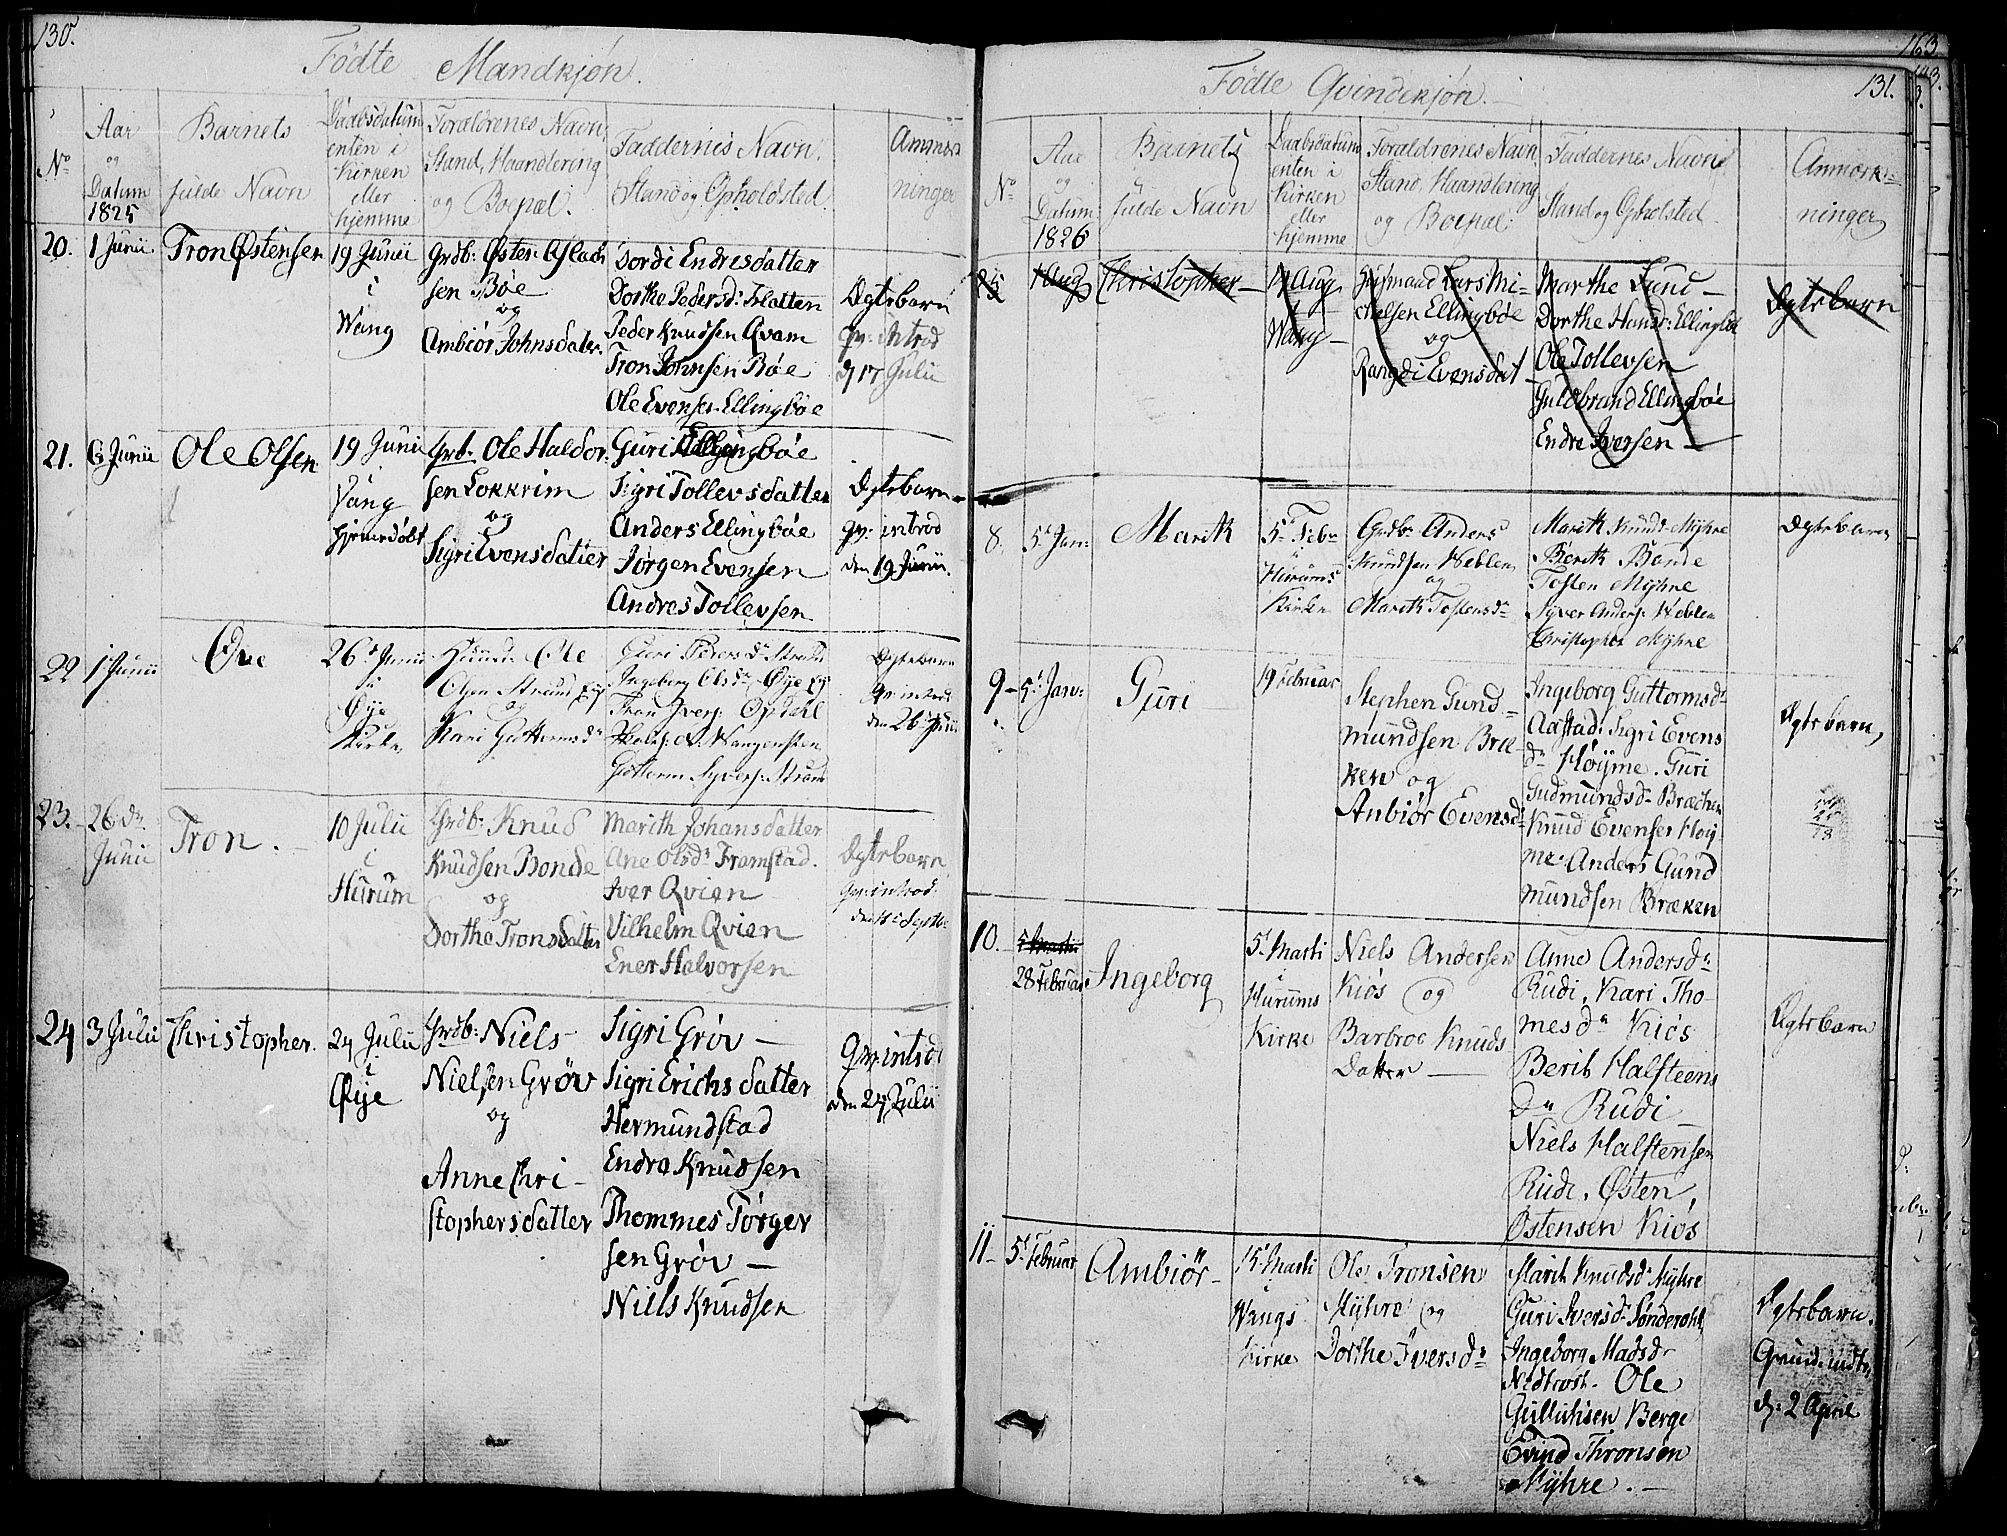 130.
Födte Mandkjön.
No
Aar
og
Datum
1825
Barnets
fulde Navn
Daabsdatum
enten i
Kirken
eller
hjemme
Foraldrenes Navn,
Stand, Haandtering
og Bopæl.
Faddernis Navn,
Stand og Opholdsted
Anmær
ninger
20.
1 Junii
Tron Østensen
19 Junii
i
Wang
Grdb: Østen Aslach
sen Bøe
og
Ambiör Johnsdater.
Dordi Endresdatter
Dorthe Pedersdr Hatten
Peder Knudsen Qvam
Tron Johnsen Bøe
Ole Evensen Ellingbøe
Ægtebarn
Qv: introd
d 17 Julii
21.
6 Junii
Ole Olsen
19 Junii
Vang
hjemedöbt
Grb. Ole Haldor
sen Lokrim
og
Sigri Evensdatter
Guri Ellingbøe
Sigri Tollevsdatter
Anders Ellingbøe
Jörgen Evensen
Andres Tollevsen
Ægtebarn
Qv: introd
den 19 Junii.
22
1 Junii
Ove
26 Junii
i
Øye
Kirke
Huusm. Ole
Olsen Strand
og
Kari Guttormsdr
Guri Pedersdr Strand
Ingeborg Olsdr Øye
Tron Iversen Opdahl
Guttorm Syvers: Strand
Ægtebarn
Qv introd
den 26 Junii
23.
26 dn
Junii
Tron.
10 Julii
i
Hurum
Grdb: Knud
Knudsen Bonde
og
Dorthe Tronsdatter
Marith Johansdatter
Ane Olsdr Framstad.
Iver Qvien
Vilhelm Qvien
Ener Halvorsen
Ægtebarn
Qv: introd:
24
3 Julii
Christopher.
24 Julii
i
Øye
Grdb: Niels
Nielsen Gröv
og
Anne Chri-
stophersdatter
Sigri Gröv —
Sigri Erichsdatter
Hermundstad
Endre Knudsen
Thommes Törger
sen Gröv —
Nills Knudsen
Qv: introd
den 24 Julii
163
131.
Födte Qvindekjön.
No
Aar
og
Datum
1826
Barnets
fulde Navn
Daabsdatum
enten i
Kirken
eller
hjemme
Foraldrenes Navn
Stand, Haandtering
og Bopæl
Faddernes Navne
Stand og Opholsted
Anmærk=
ninger
25
1 Aug
Christopher —
14 Aug
i
Wang —
Huusmand Lars Mi-
chelsen Ellingbøe
og
Rangdi Evensdat
Marthe Lund —
Dorthe Hansdr Ellingbøe
Ole Tollevsen
Guldbrand Ellingbøe
Endre Iversen —
Ægtebarn
8.
5 Jan:
Marith
5 Febr
i
Hurums
Kirke
Grdbr Anders
Knudsen Heblen
og
Marith Tostensdr
Marith Knudsd Myhre
Berith Bonde
Tosten Myhre
Syver Anders: Heblen
Christopher Myhre
Ægtebarn
9
5 Jan:
Guri
19 Februar
Stephen Gund-
mundsen Bræ-
ken og
Anbiör Evensdr
Ingeborg Guttormsdr
Aastad. Sigri Evens
dr Höyme. Guri
Gudmundsdr Brækken
Knud Evensen Höy
me Anders Gund
mundsen Bræken
Ægtebarn,
10.
28 Februar
Ingeborg
5 Marti
i
Hurums
Kirke
Niels Andersen
Kiös og
Barbroe Knuds
Datter —
Anne Andersdr
Rudi, Kari Tho-
mesdr Kiös
Berit Halsteens
Dr Rudi —
Niels Halstensen
Rudi, Østen,
Østensen Kiös
Ægtebarn
11
5 Februar
Ambiör
15 Marti
i
Wangs
Kirke
Ole Tronsen
Myhre og
Dorthe Iversdr
Marith Knudsd Myhre
Guri Iversdr Sönderohl,
Ingeborg Madsdr
Nedtrost. Ole
Gullichsen Berge
Evind Thronsen
Myhre. —
Ægtebarn.
d: 2 April